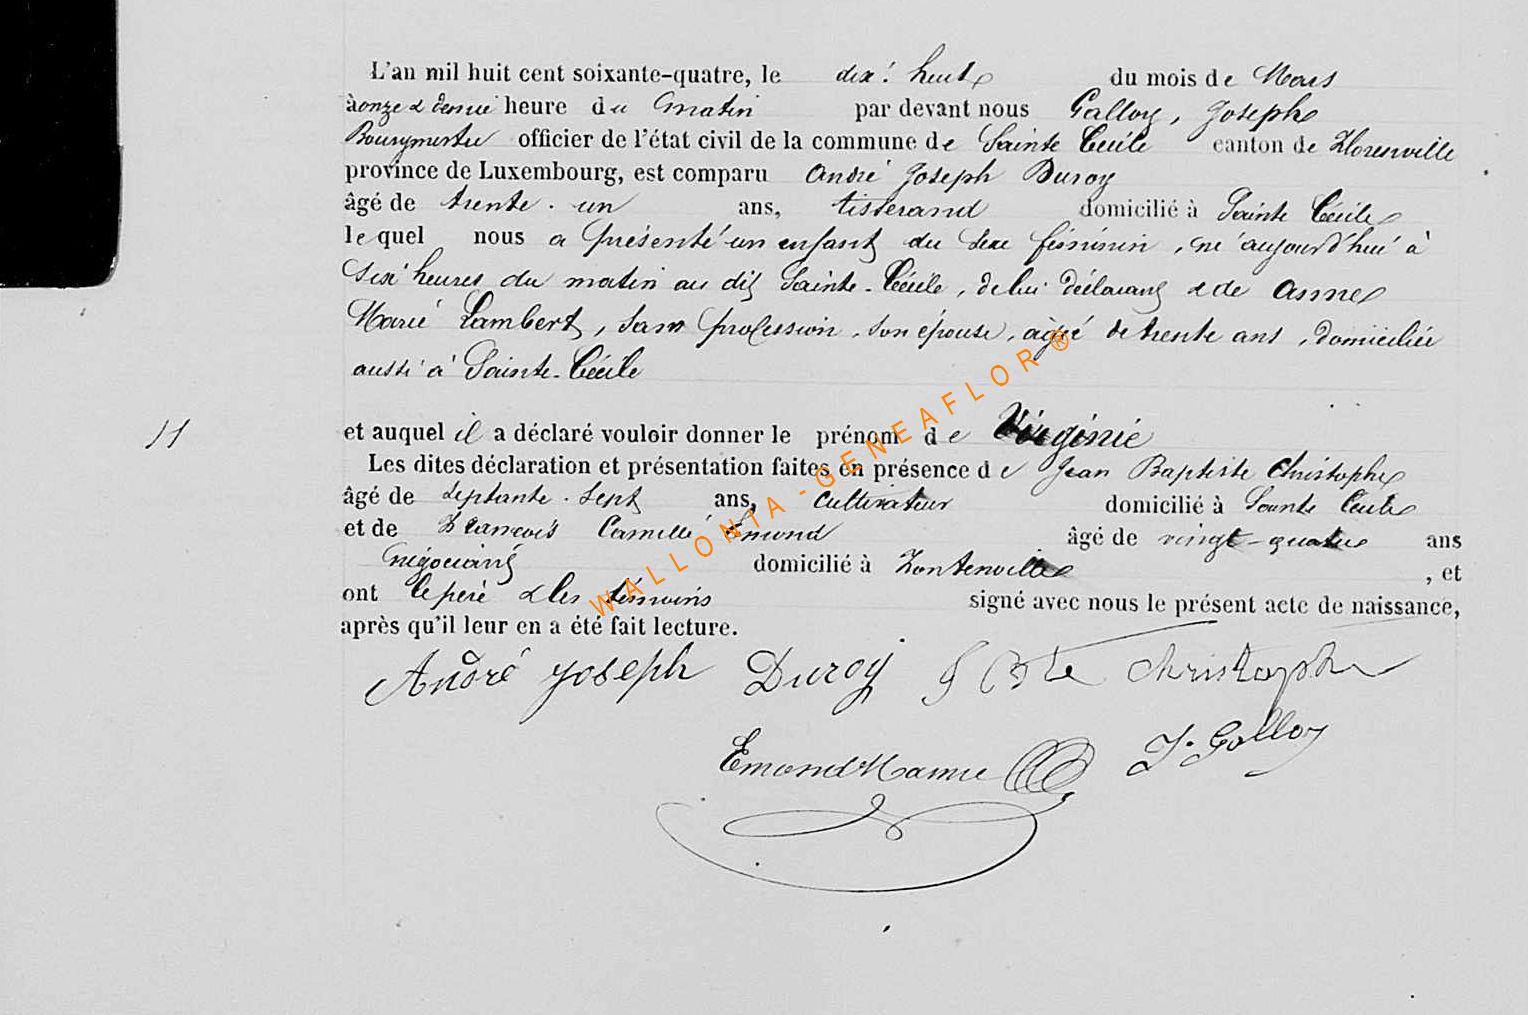 L'an mil huit cent soixante-quatre, le dix-huit du mois de Mars
à onze & demie heure du matin par devant nous Galloy, Joseph
Bourgmestre officier de l'état civil de la commune de Sainte Cécile canton de Florenville
province de Luxembourg, est comparu André Joseph Duroy
âgé de trente-un ans, tisserand domicilié à Sainte Cécile
lequel nous a présenté un enfant du sexe féminin, né aujourd'hui à
six heures du matin au dit Sainte-Cécile, de lui déclarant & de Anne
Marie Lambert, sans profession, son épouse, agée de trente ans, domiciliée
aussi à Sainte-Cécile
11
et auquel il a déclaré vouloir donner le prénom de Virginie
Les dites déclaration et présentation faites en présence de Jean Baptiste Christophe
âgé de septante-sept ans, cultivateur domicilié à Sainte Cécile
et de François Camille Emond âgé de vingt-quatre ans
négociant domicilié à Fontenoille, et
ont le père & les témoins signé avec nous le présent acte de naissance,
après qu'il leur en a été fait lecture.
André Joseph Duroy J Bte Christophe
Emond J. Galloy
WALLONIA-GENEAFLOR®